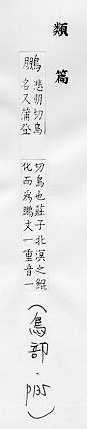 類篇
鵬
悲朋切鳥
名又蒲登
切鳥也莊子北溟之鯤
化而爲鵬文一重音一
(鳥部.p135)